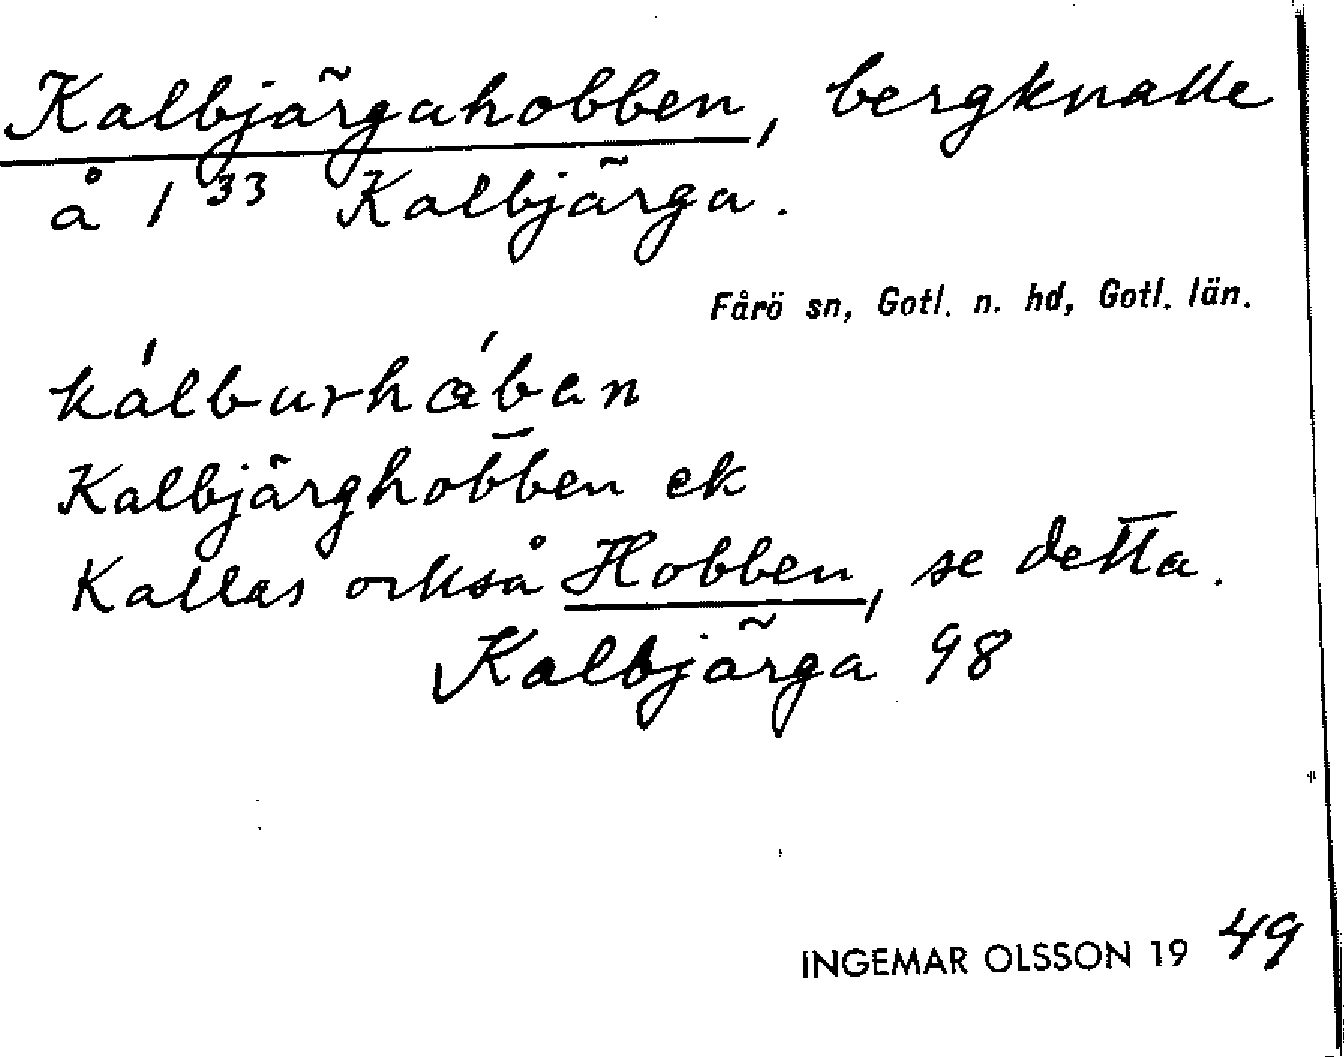 Kalbjärgahobben, bergknalle
å 1³³ Kalbjärga.
Fårö sn, Gotl. n. hd, Gotl. län.
Kalbjärghobben ek
Kallas också Hobben, se detta.
Kalbjärga 98
INGEMAR OLSSON 19 49